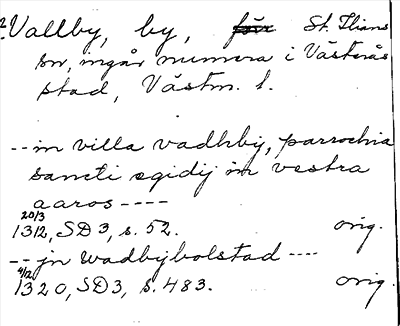 2. Vallby, by, för St. Ilians
sn, ingår numera i Västerås
stad, Västm. l.
-- in villa vadhby, parrochia
sancti egidij in vestra
aaros ----
20/3
1312, SD3, s. 52. orig.
-- jn wadbybolstad ----
4/12
1320, SD3, s. 483. orig.